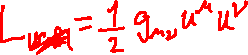 L = 1/2 g_{μν} u^μ u^ν